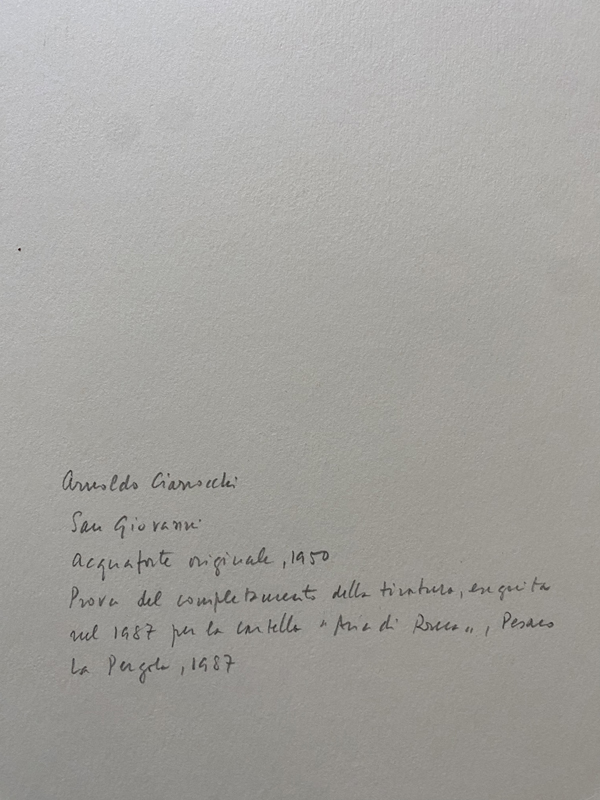 Arnoldo Ciarrocchi
San Giovanni
Acquaforte originale, 1950
Prova del completamento della tiratura, eseguita
nel 1987 per la cartella "Aria di Roma„, Pesaro
La Pergola, 1987